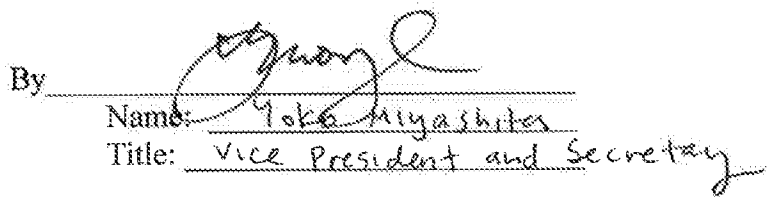 By
Name: Yoko Miyashita
Title: Vice President and Secretay